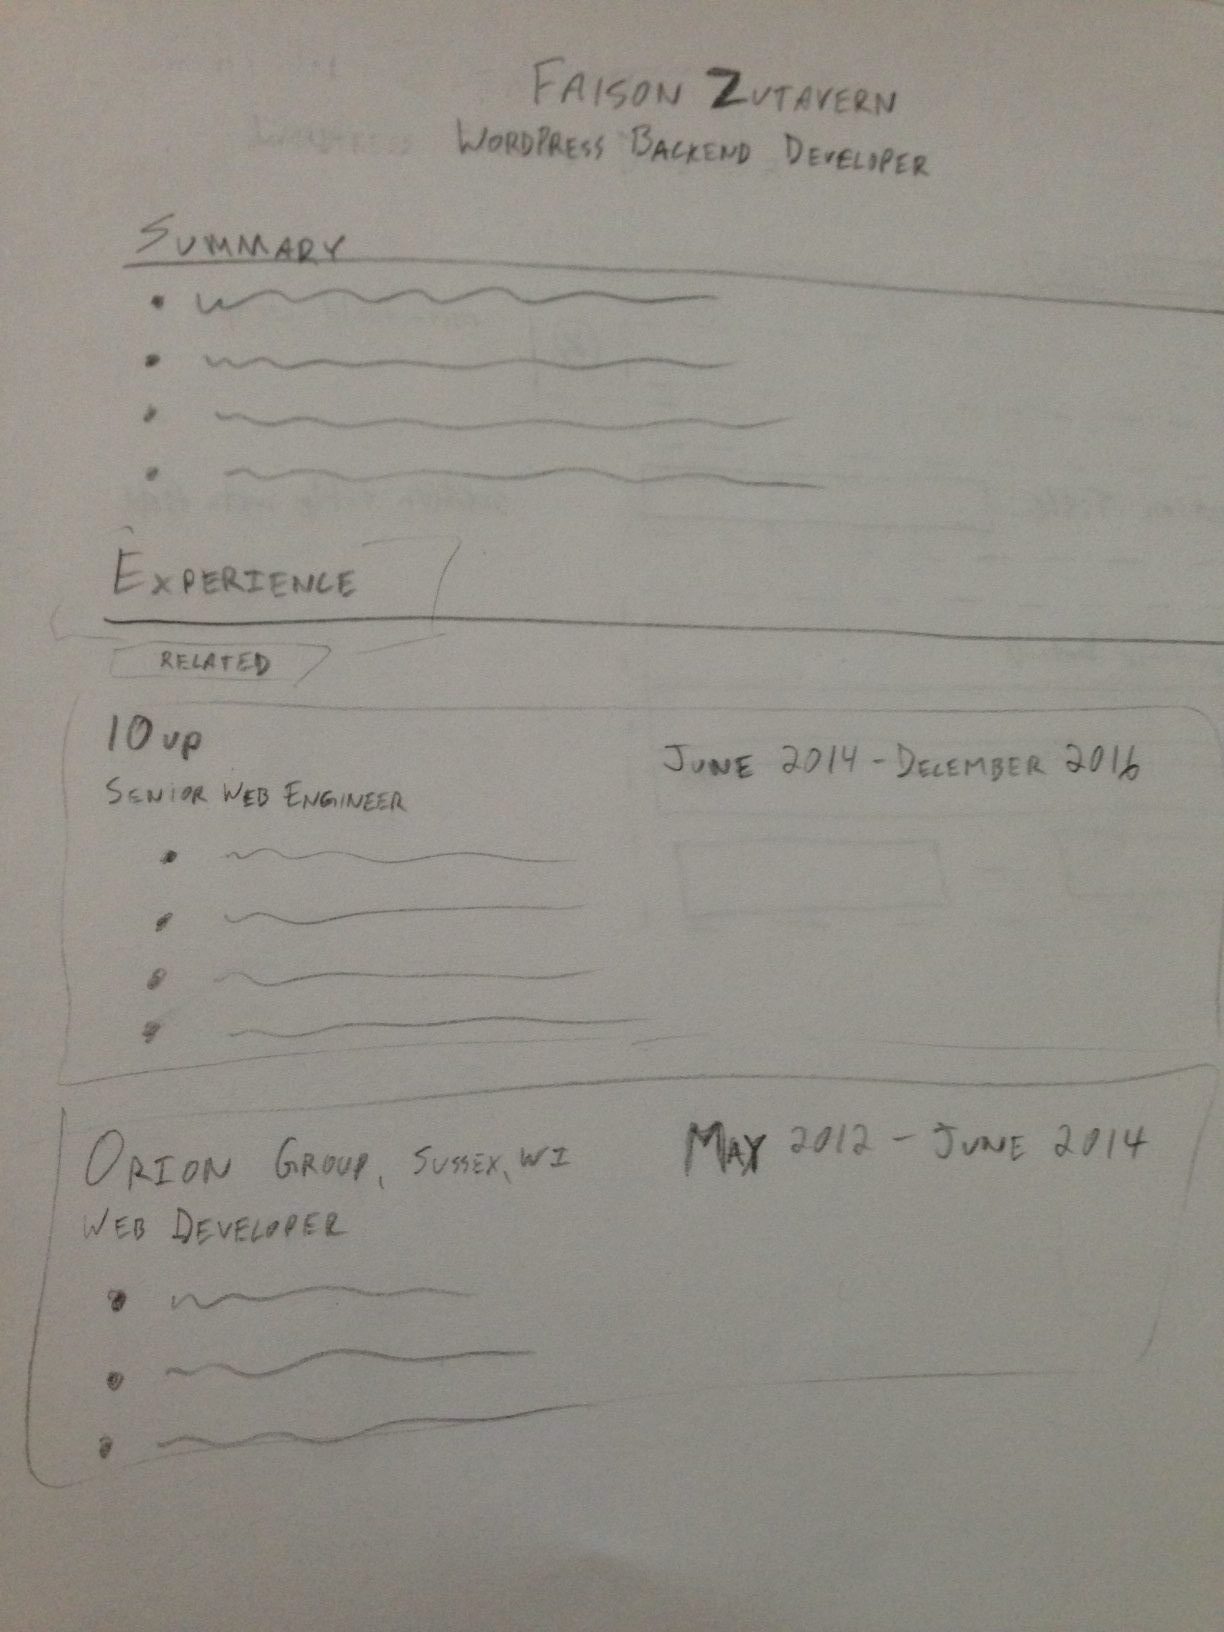 FAISON ZUTAVERN
WORDPRESS BACKEND DEVELOPER
SUMMARY
EXPERIENCE
RELATED
10up
JUNE 2014 - DECEMBER 2016
SENIOR WEB ENGINEER
ORION GROUP, SUSSEX, WI
MAY 2012 - JUNE 2014
WEB DEVELOPER